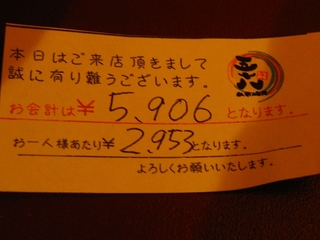 本日はご来店頂きまして
誠に有り難うございます。
お会計は¥ 5,906 となります。
お一人様あたり¥ 2,953 となります。
よろしくお願いいたします。